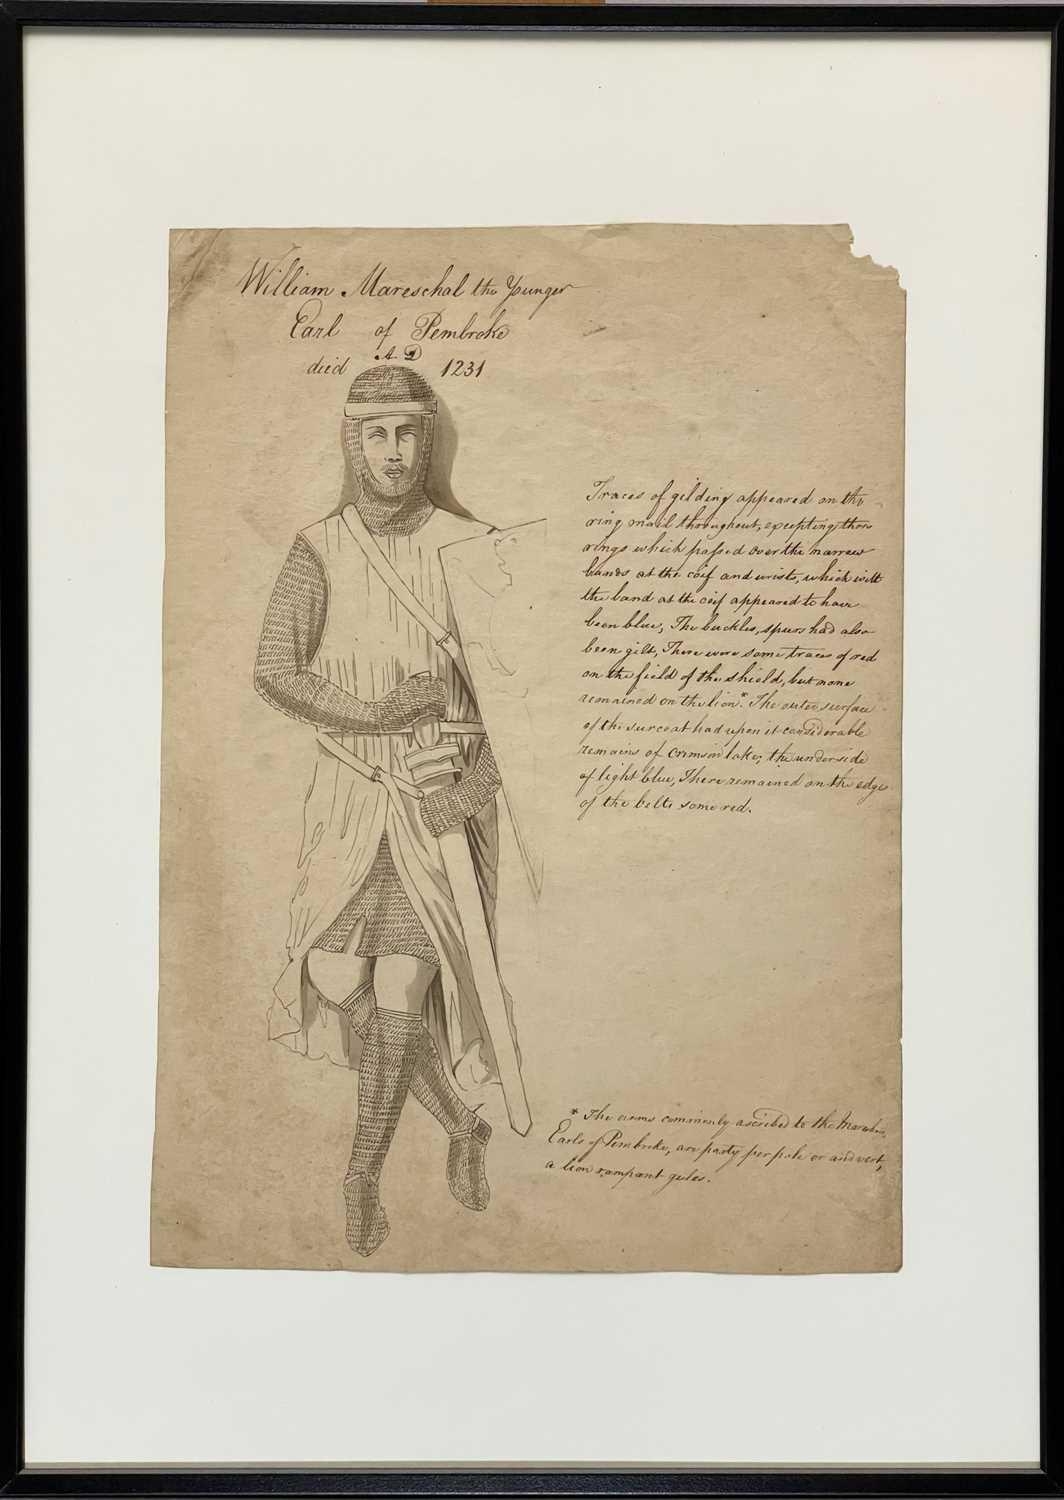 William Mareschal the Younger
Earl of Pembroke
died AD 1231
Traces of gilding appeared on the
ring mail throughout, excepting those
rings which passed over the narrow
bands at the coif and wrists, which with
the band at the coif appeared to have
been blue, The buckles, spurs had also
been gilt, There were some traces of red
on the field of the shield, but none
remained on the lion*. The outer surface
of the surcoat had upon it considerable
remains of crimson lake, the underside
of light blue, There remained on the edge
of the belts some red.
* The arms commonly ascribed to the
Earls of Pembroke, are party per pale or and vert,
a lion rampant gules.